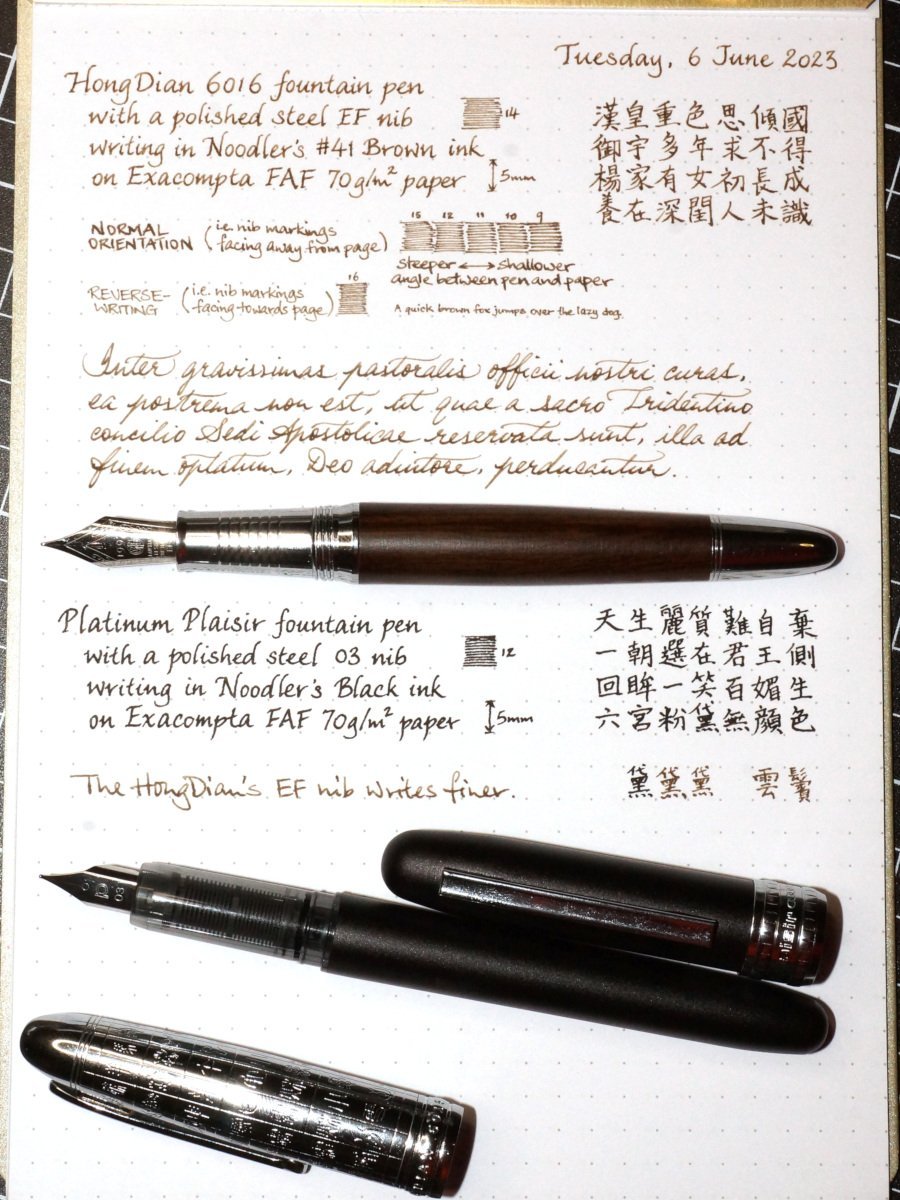 Tuesday, 6 June 2023
HongDian 6016 fountain pen
with a polished steel EF nib
writing in Noodler's #41 Brown ink
on Exacompta FAF 70g/m² paper
14
5mm
漢皇重色思傾國
御宇多年求不得
楊家有女初長成
養在深閨人未識
NORMAL ORIENTATION
(i.e. nib markings
facing away from page)
15 12 11 10 9
steeper ↔ shallower
angle between pen and paper
REVERSE-
WRITING
(i.e. nib markings
facing towards page)
16
A quick brown fox jumps over the lazy dog.
Inter gravissimas pastoralis officii nostri curas,
ea postrema non est, ut quae a sacro Tridentino
concilio Sedi Apostolicae reservata sunt, illa ad
finem optatum, Deo adiutore, perducantur.
Platinum Plaisir fountain pen
with a polished steel 03 nib
writing in Noodler's Black ink
on Exacompta FAF 70g/m² paper
12
5mm
天生麗質難自棄
一朝選在君王側
回眸一笑百媚生
六宮粉黛無顏色
The HongDian's EF nib writes finer.
黛黛黛 雲鬢
03